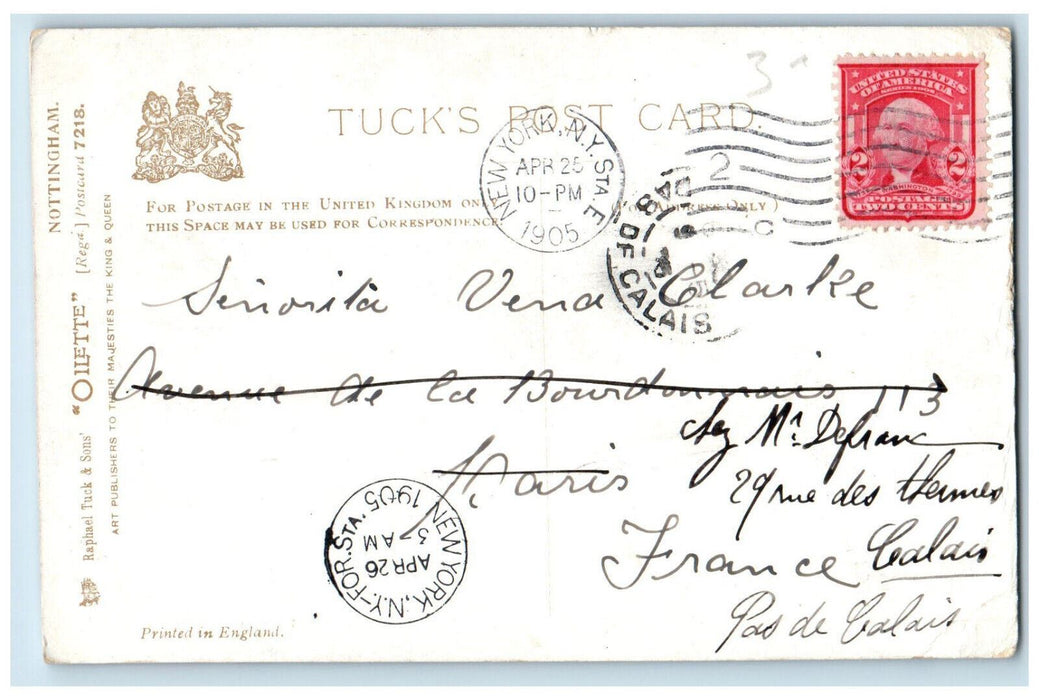 TUCK'S POST CARD.
FOR POSTAGE IN THE UNITED KINGDOM ON ADDRESS ONLY)
THIS SPACE MAY BE USED FOR CORRESPONDENCE
NEW YORK, N.Y. STA. E
APR 25
10-PM
1905
2
3
DE CALAIS
UNITED STATES
OF AMERICA
SERIES 1902
2 2
WASHINGTON
POSTAGE
TWO CENTS
NOTTINGHAM.
Raphael Tuck & Sons' "OILETTE" [Regd.] Postcard 7218.
ART PUBLISHERS TO THEIR MAJESTIES THE KING & QUEEN
Señorita Vena Clarke
Avenue de la Bourdonnais 113
Paris
chez Mr. Defranc
29 rue des Thermes
France Calais
Pas de Calais
NEW YORK, N.Y.-FOR. STA.
APR 26
3 AM
1905
Printed in England.